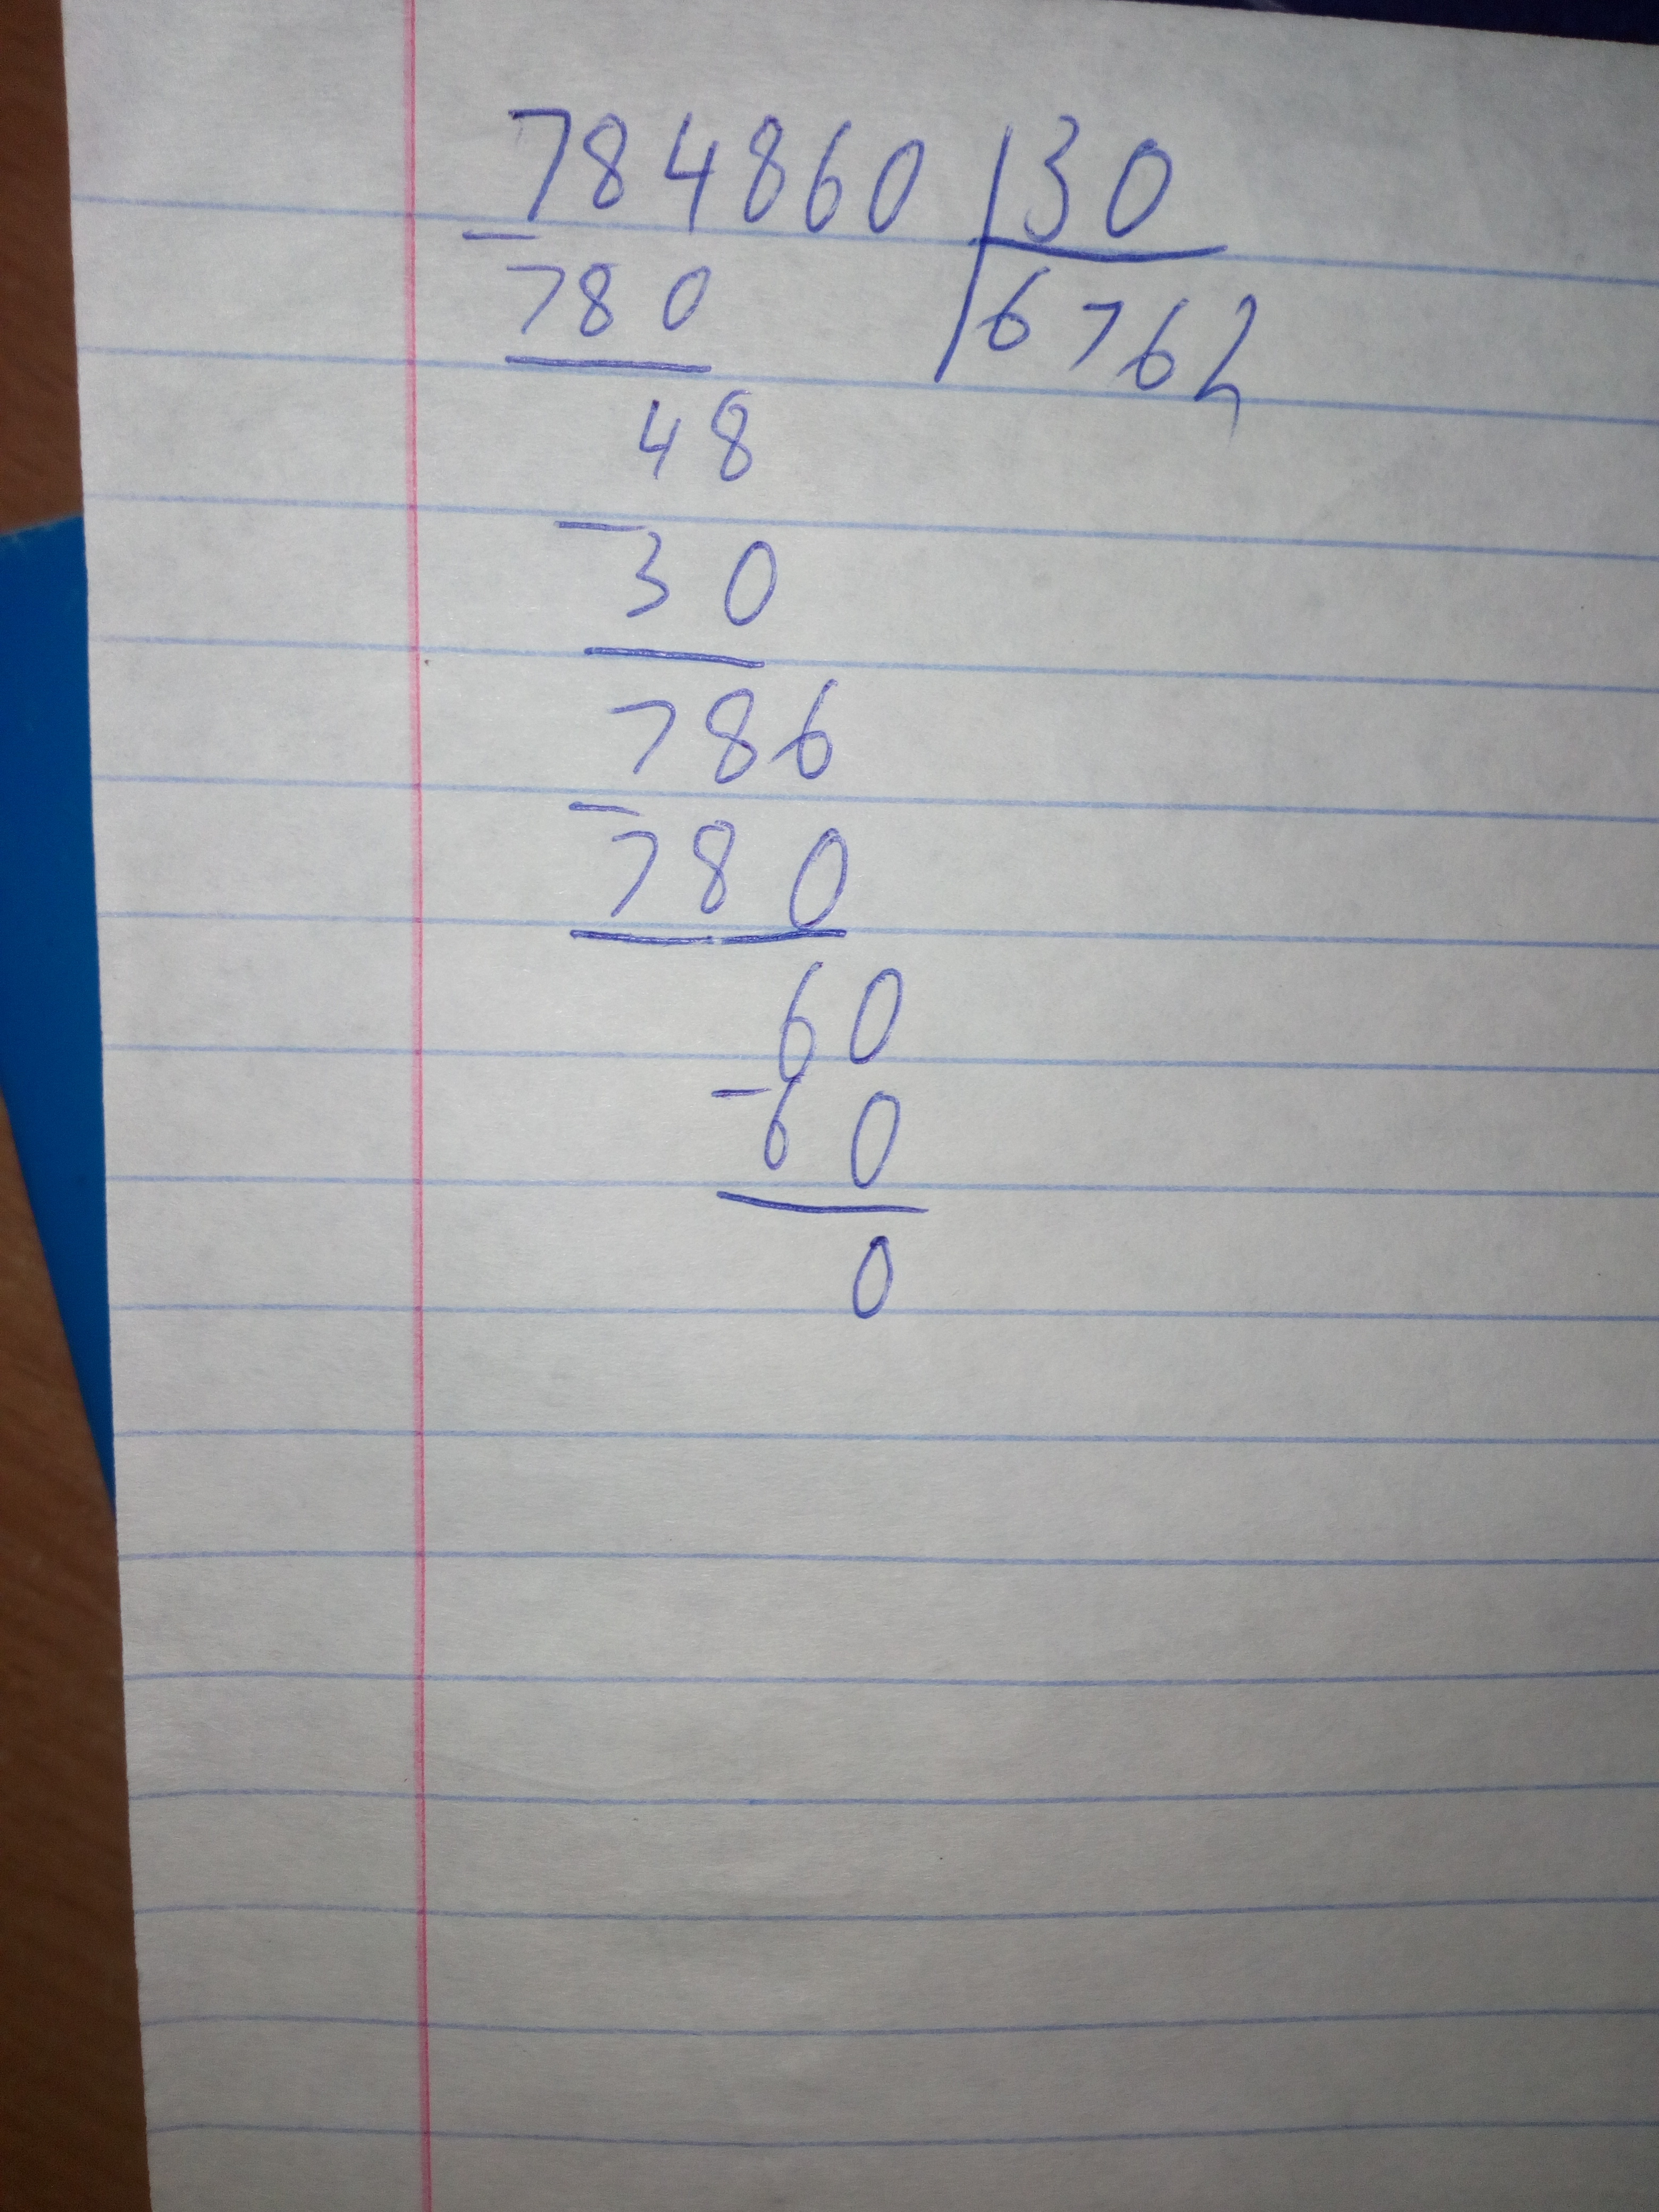 784860 | 30
- 780 | 6762
48
- 30
786
- 780
60
- 60
0